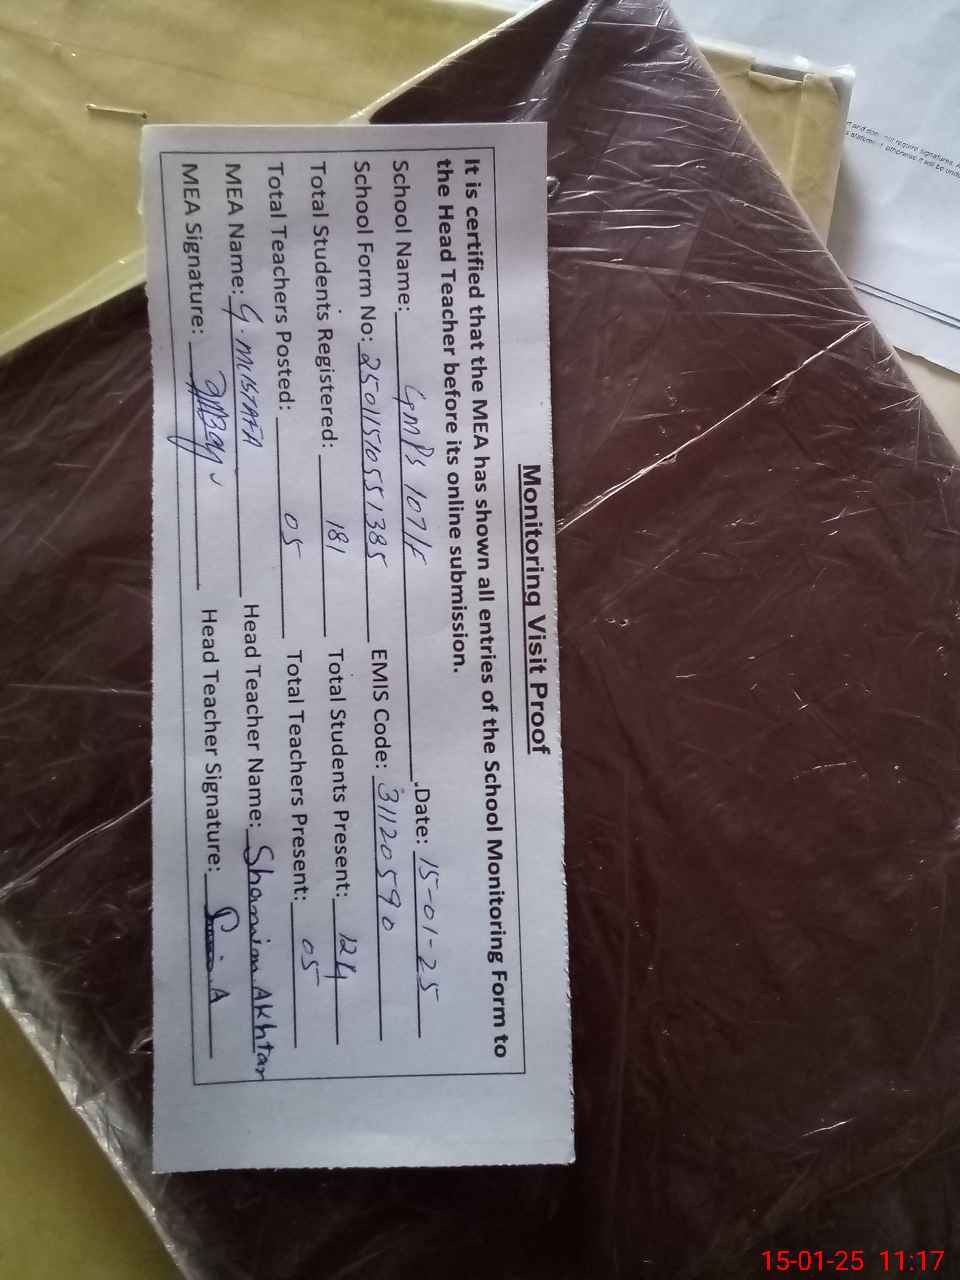 Monitoring Visit Proof
It is certified that the MEA has shown all entries of the School Monitoring Form to
the Head Teacher before its online submission.
School Name: GMPS 107/F .Date: 15-01-25
School Form No: 25011510551385 EMIS Code: 31120590
Total Students Registered: 181 Total Students Present: 124
Total Teachers Posted: 05 Total Teachers Present: 05
MEA Name: G. MUSTAFA Head Teacher Name: Shamim Akhtar
MEA Signature: Head Teacher Signature:
require signatures.
otherwise it will be
15-01-25 11:17